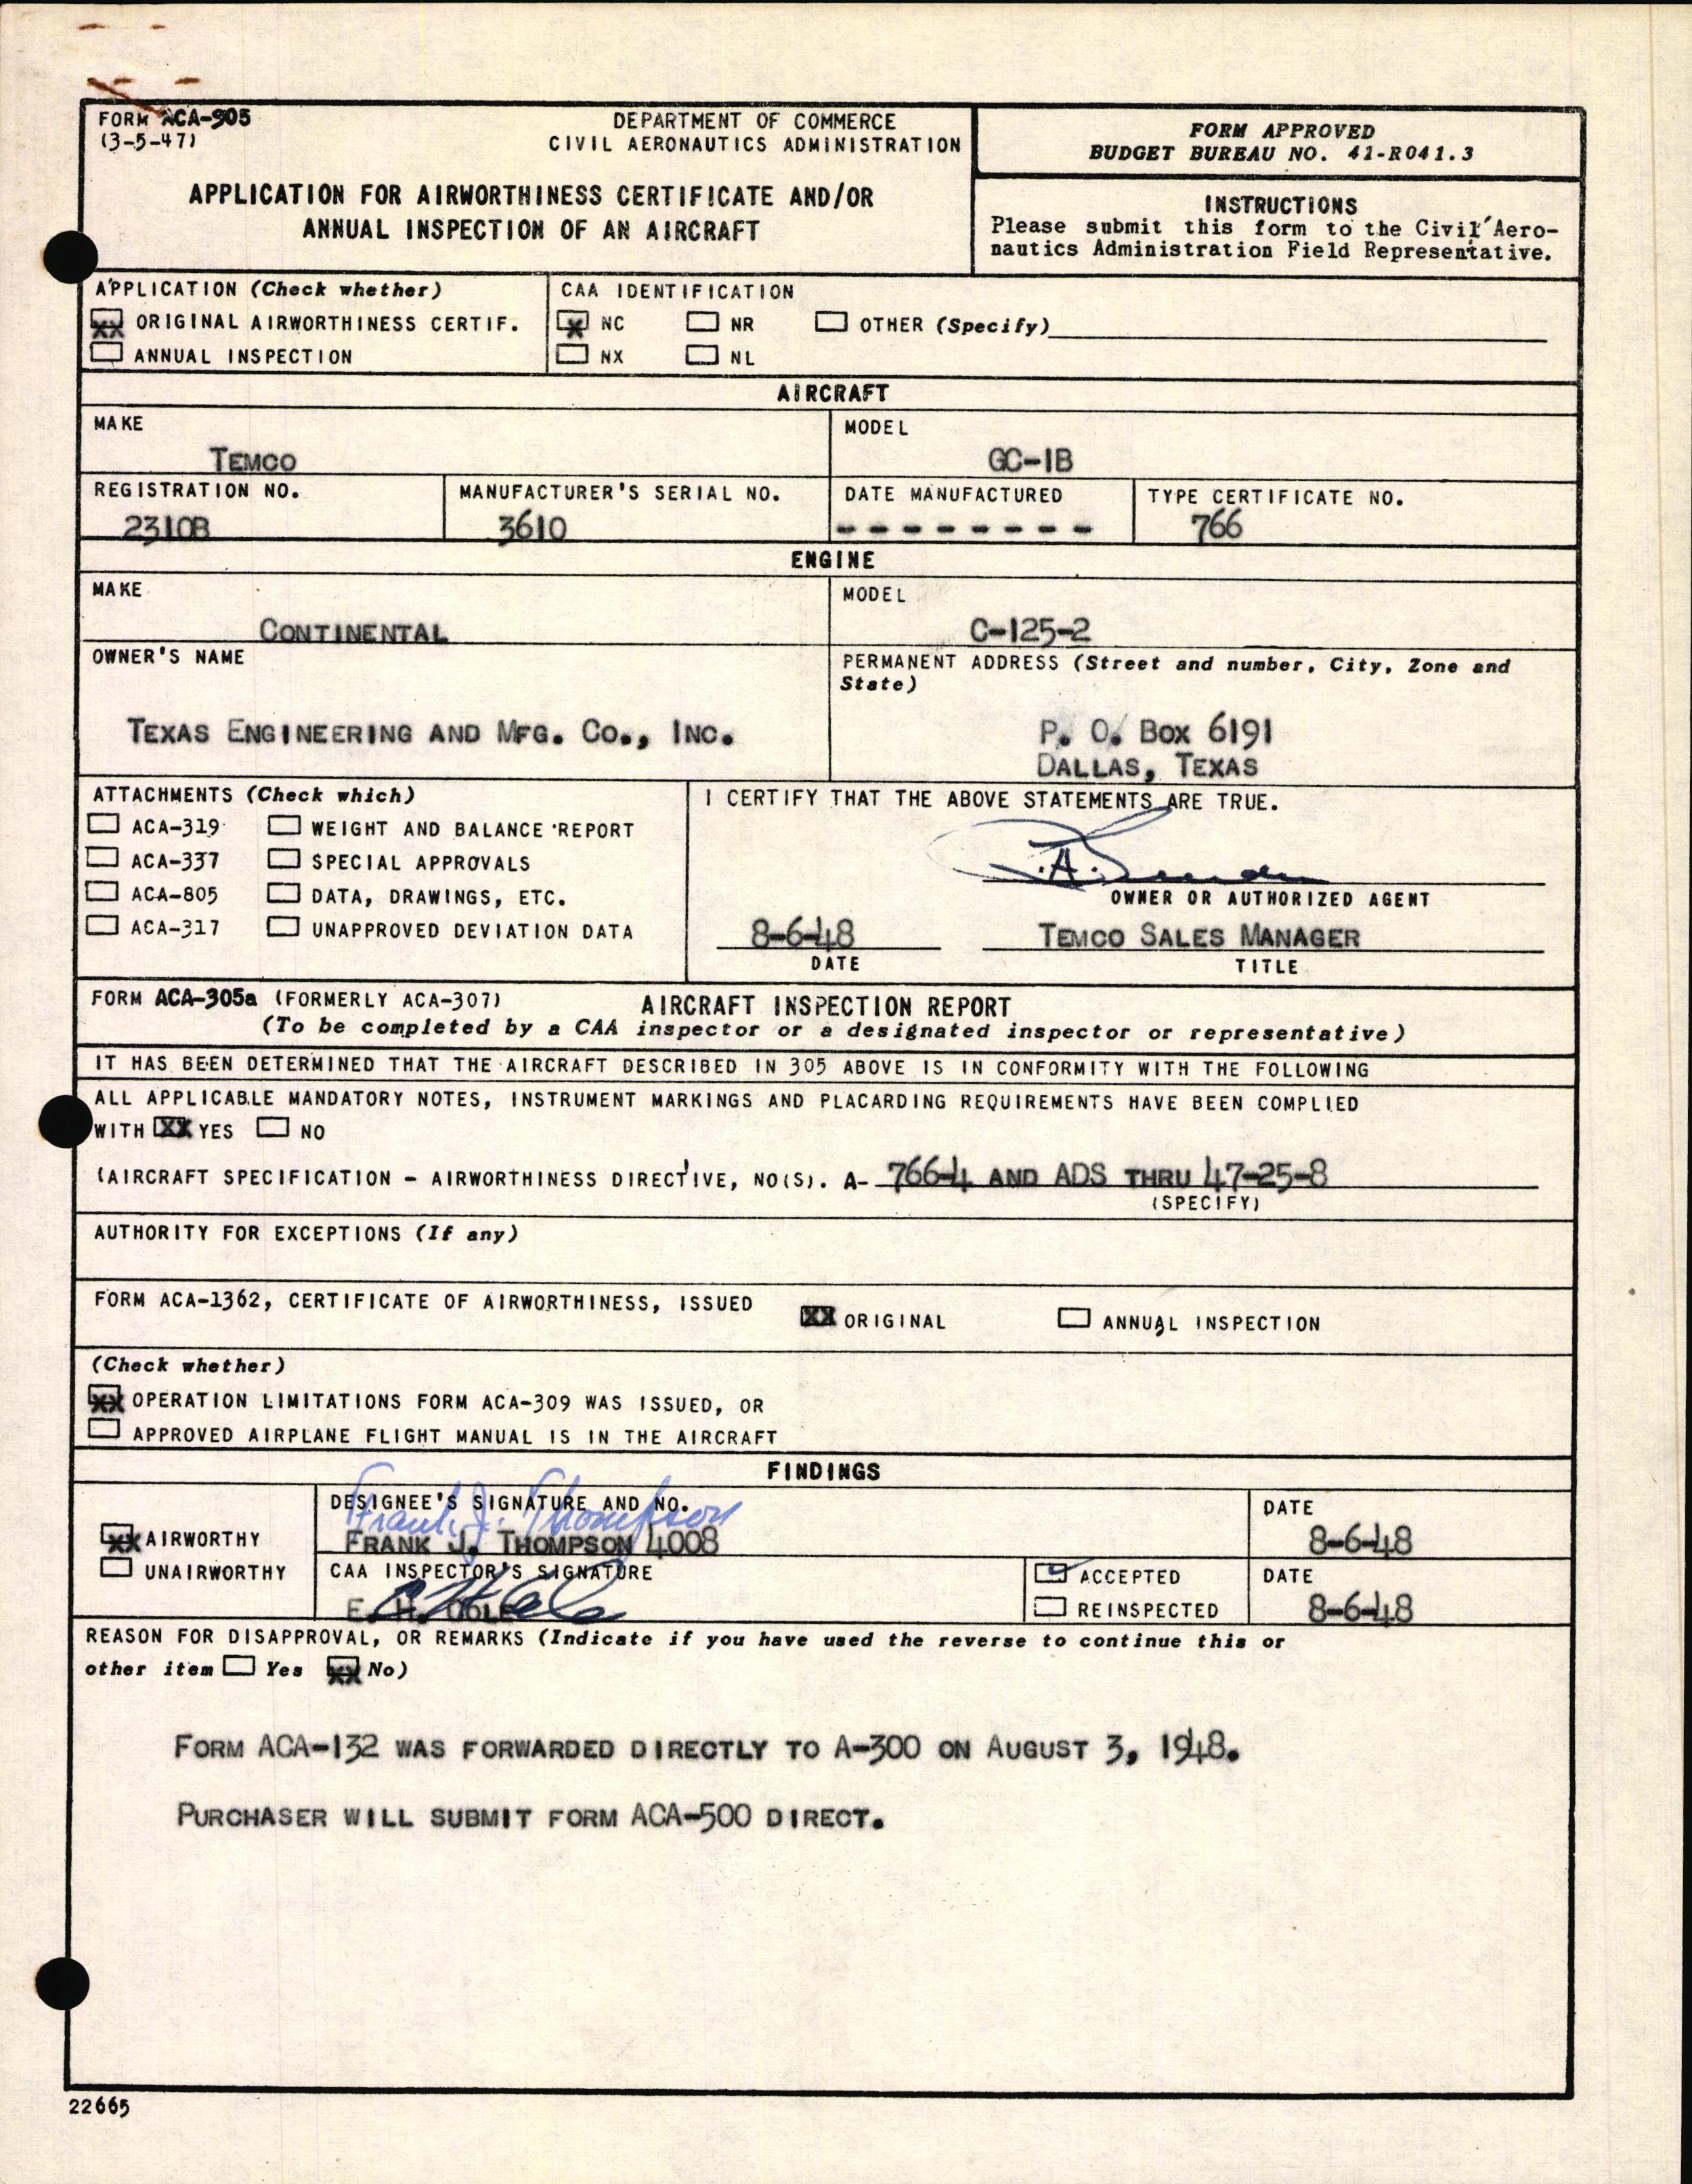 FORM ACA-305
(3-5-47)
DEPARTMENT OF COMMERCE
CIVIL AERONAUTICS ADMINISTRATION
APPLICATION FOR AIRWORTHINESS CERTIFICATE AND/OR
ANNUAL INSPECTION OF AN AIRCRAFT
FORM APPROVED
BUDGET BUREAU NO. 41-R041.3
INSTRUCTIONS
Please submit this form to the Civil Aero-
nautics Administration Field Representative.
APPLICATION (Check whether)
XX ORIGINAL AIRWORTHINESS CERTIF.
ANNUAL INSPECTION
CAA IDENTIFICATION
X NC NR OTHER (Specify)
NX NL
AIRCRAFT
MAKE
TEMCO
MODEL
GC-1B
REGISTRATION NO.
2310B
MANUFACTURER'S SERIAL NO.
3610
DATE MANUFACTURED
- - - - - - - -
TYPE CERTIFICATE NO.
766
ENGINE
MAKE
CONTINENTAL
MODEL
C-125-2
OWNER'S NAME
TEXAS ENGINEERING AND MFG. CO., INC.
PERMANENT ADDRESS (Street and number, City, Zone and
State)
P. O. BOX 6191
DALLAS, TEXAS
ATTACHMENTS (Check which)
ACA-319 WEIGHT AND BALANCE REPORT
ACA-337 SPECIAL APPROVALS
ACA-805 DATA, DRAWINGS, ETC.
ACA-317 UNAPPROVED DEVIATION DATA
I CERTIFY THAT THE ABOVE STATEMENTS ARE TRUE.
OWNER OR AUTHORIZED AGENT
8-6-48 TEMCO SALES MANAGER
DATE TITLE
FORM ACA-305a (FORMERLY ACA-307) AIRCRAFT INSPECTION REPORT
(To be completed by a CAA inspector or a designated inspector or representative)
IT HAS BEEN DETERMINED THAT THE AIRCRAFT DESCRIBED IN 305 ABOVE IS IN CONFORMITY WITH THE FOLLOWING
ALL APPLICABLE MANDATORY NOTES, INSTRUMENT MARKINGS AND PLACARDING REQUIREMENTS HAVE BEEN COMPLIED
WITH XX YES NO
(AIRCRAFT SPECIFICATION - AIRWORTHINESS DIRECTIVE, NO(S). A- 766-4 AND ADS THRU 47-25-8
(SPECIFY)
AUTHORITY FOR EXCEPTIONS (If any)
FORM ACA-1362, CERTIFICATE OF AIRWORTHINESS, ISSUED XX ORIGINAL ANNUAL INSPECTION
(Check whether)
XX OPERATION LIMITATIONS FORM ACA-309 WAS ISSUED, OR
APPROVED AIRPLANE FLIGHT MANUAL IS IN THE AIRCRAFT
FINDINGS
XX AIRWORTHY
UNAIRWORTHY
DESIGNEE'S SIGNATURE AND NO.
Frank J. Thompson
FRANK J. THOMPSON 4008
DATE
8-6-48
CAA INSPECTOR'S SIGNATURE
E. H.
ACCEPTED
REINSPECTED
DATE
8-6-48
REASON FOR DISAPPROVAL, OR REMARKS (Indicate if you have used the reverse to continue this or
other item Yes XX No)
FORM ACA-132 WAS FORWARDED DIRECTLY TO A-300 ON AUGUST 3, 1948.
PURCHASER WILL SUBMIT FORM ACA-500 DIRECT.
22665